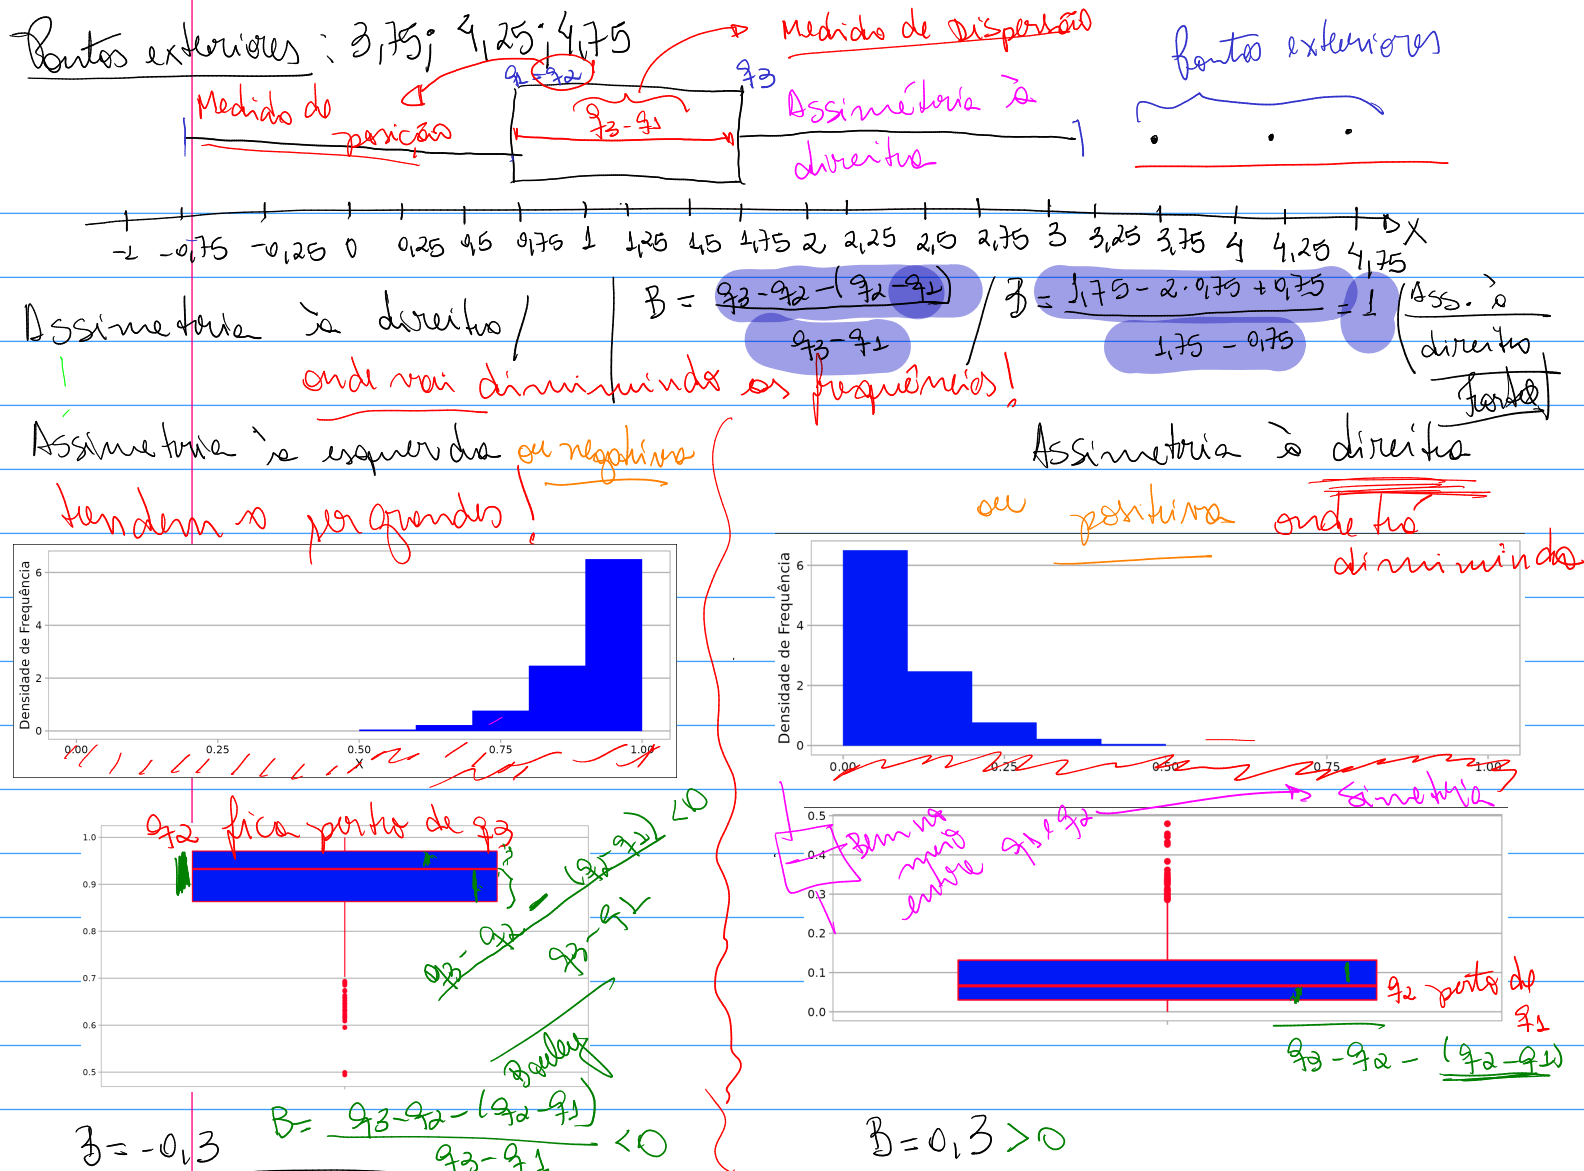 Pontos exteriores : 3,75; 4,25; 4,75
Medida de Dispersão
Pontos exteriores
q1 = q2
q3
Medida de
posição
q3-q1
Assimetria à
direita
-1 -0,75 -0,25 0 0,25 0,5 0,75 1 1,25 1,5 1,75 2 2,25 2,5 2,75 3 3,25 3,75 4 4,25 4,75 X
Assimetria à direita
B = q3-q2-(q2-q1)
q3-q1
B = 1,75 - 2·0,75 + 0,75 = 1
1,75 - 0,75
Ass. à
direita
Forte
onde vai diminuindo as frequências!
Assimetria à esquerda ou negativa
tendem a ser grandes!
Assimetria à direita
ou positiva onde
diminuindo
Densidade de Frequência
6
4
2
0
0.00 0.25 0.50 0.75 1.00
X
Densidade de Frequência
6
4
2
0
0.00 0.25 0.50 0.75 1.00
q2 fica perto de q3
1.0
0.9
0.8
0.7
0.6
0.5
q3-q2-(q2-q1) <0
q3-q1
Bowley
B = q3-q2-(q2-q1) <0
q3-q1
B=-0,3
Bem no
meio
entre
q1 e q2
Simetria
0.5
0.4
0.3
0.2
0.1
0.0
q2 perto de
q1
q3-q2-(q2-q1)
B=0,3 >0